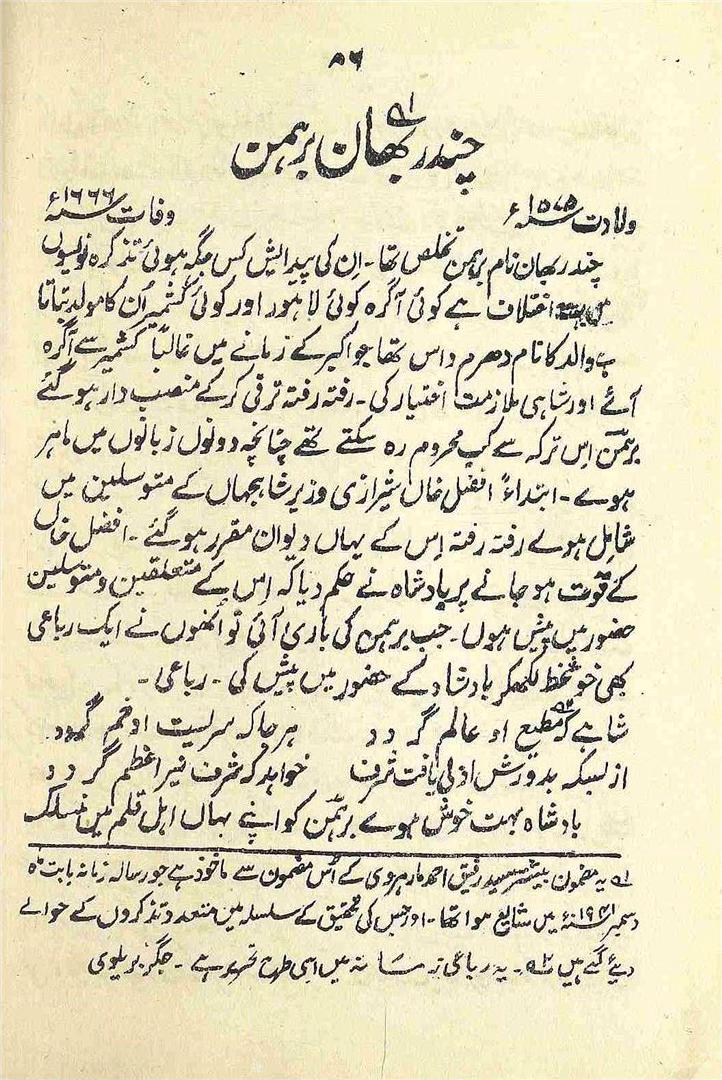 ۵۶
چندر بھان برہمن ؂۱
ولادت ۱۵۷۵ء وفات ۱۶۶۶ء
چندر بھان نام برہمن تخلص تھا۔ اِن کی پیدایش کس جگہ ہوئی تذکرہ نویسوں
میں اختلاف ہے کوئی آگرہ کوئی لاہور اور کوئی کشمیر اُن کا مولد بتاتا
ہے والد کا نام دھرم داس تھا جو اکبر کے زمانے میں غالباً کشمیر سے آگرہ
آئے اور شاہی ملازمت اختیار کی۔ رفتہ رفتہ ترقی کر کے منصب دار ہو گئے
برہمن اِس ترکہ سے کب محروم رہ سکتے تھے چنانچہ دونوں زبانوں میں ماہر
ہوے۔ ابتداءً افضل خاں شیرازی وزیر شاہجہاں کے متوسلین میں
شامل ہوے رفتہ رفتہ اِس کے یہاں دیوان مقرر ہو گئے۔ افضل خاں
کے فوت ہو جانے پر بادشاہ نے حکم دیا کہ اِس کے متعلقین و متوسلین
حضور میں پیش ہوں۔ جب برہمن کی باری آئی تو اُنھوں نے ایک رباعی
بھی خوشخط لکھکر بادشاہ کے حضور میں پیش کی۔ رباعی۔
شاہے کہ مطیع او عالم گر دد ؂۲ ہر جا کہ سریست او خم گردد
از بسکہ بدورش از لی یافت شرف خواہد کہ شرف نیر اعظم گر دد
بادشاہ بہت خوش ہوے برہمن کو اپنے یہاں اہل قلم میں منسلک
؂۱ یہ مضمون بیشتر سید رفیق احمد مارہروی کے اُس مضمون سے ماخوذ ہے جو رسالہ زمانہ بابت ماہ
دسمبر ۱۹۴۱ء میں شایع ہوا تھا۔ اور جس کی تحقیق کے سلسلہ میں متعدد تذکروں کے حوالے
دیئے گئے ہیں ؂۲۔ یہ رباعی زمانہ میں اِسی طرح تحریر ہے۔ جگر بریلوی